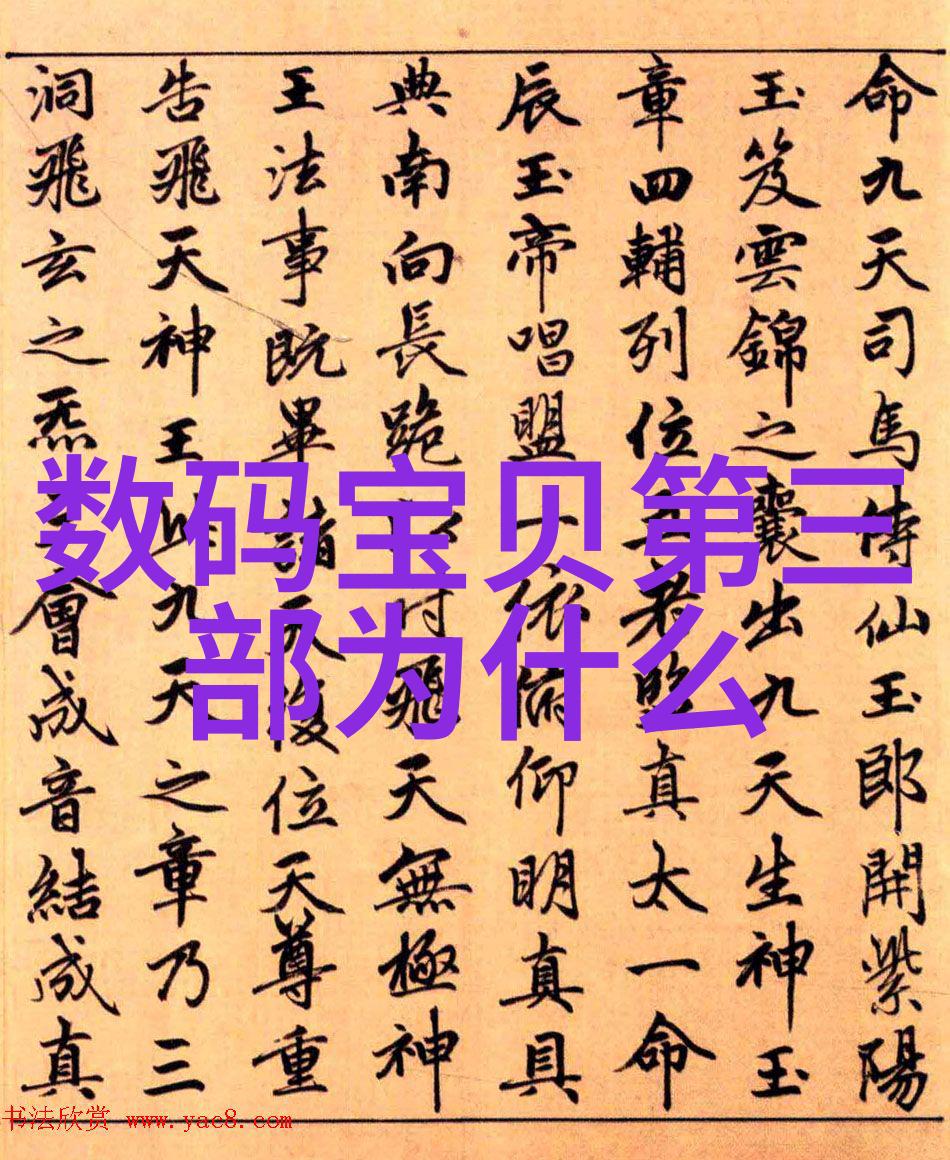 命九天司馬侍仙玉郎開紫陽
玉笈雲錦之囊出九天生神玉
章四輔列位真太一命
辰玉帝唱盟十依俯仰明真具
典南向長跪飛天無極神
王法事既畢諸天復位天尊重
告飛天神王此九天之章乃三
洞飛玄之炁會成音結成真
数码宝贝第三
部为什么
书法欣赏 www.yac8.com